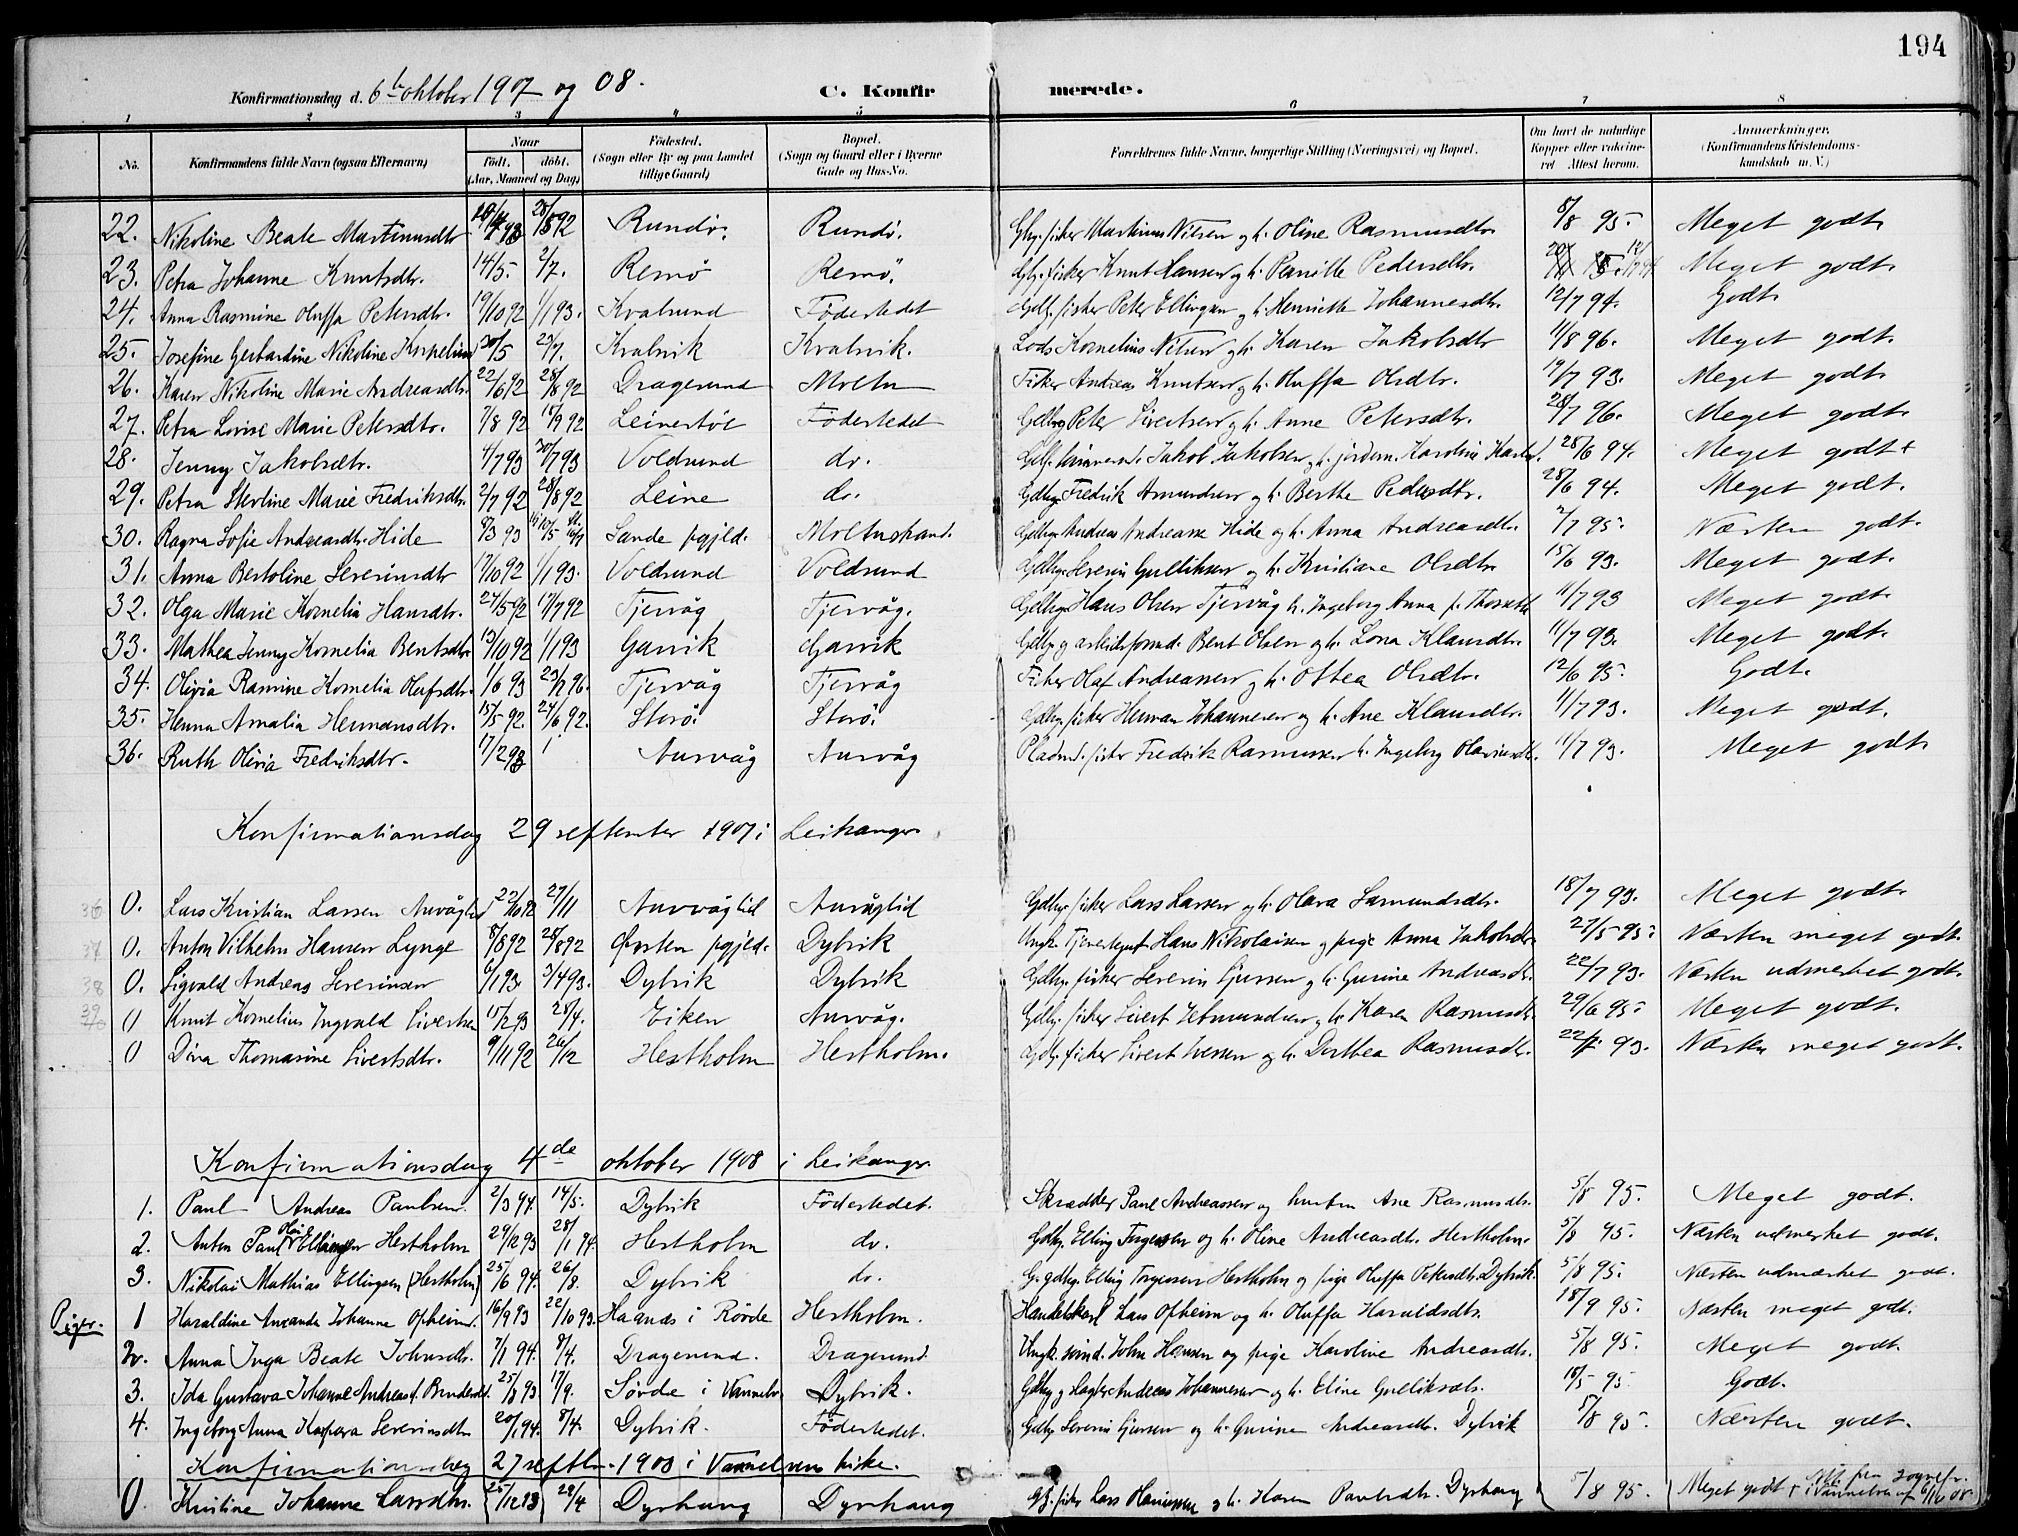 194
Konfirmationsdag d. 6te oktober 1907 og 08.
C. Konfirmerede.
1 2 3 4 5 6 7 8
No. Konfirmandens fulde Navn (ogsaa Efternavn) Naar født. døbt. (Aar, Maaned og Dag) Fødested. (Sogn eller By og paa Landet tillige Gaard) Bopæl. (Sogn og Gaard eller i Byerne Gade og Hus-No. Forældrenes fulde Navne, borgerlige Stilling (Næringsvei) og Bopæl. Om havt de naturlige Kopper eller vakcineret Attest herom. Anmærkninger. (Konfirmandens Kristendomskundskab m. V.)
22. Nikoline Beate Martinusdtr 28/8 92 Rundø. Rundø. Gbr. fisker Martinus Nilsen og h. Oline Rasmusdtr. 8/8 95. Meget godt
23. Petra Johanne Knutsdtr. 14/5. 2/7. Remø Remø. Gbr. fisker Knut Hansen og h. Pernille Pedersdtr. Meget godt.
24. Anna Rasmine Oluffa Petersdtr. 19/10 92 1/1 93. Kvalsund Fødestedet Gdbr. fisker Peter Ellingsen og h. Henriette Johannesdtr. 12/7 94. Godt
25. Josefine Gerhardine Nikoline Kornelius 30/5 29/7. Kvalvik Kvalvik. Lods Kornelius Nilsen og h. Karen Jakobsdtr 11/8 96. Meget godt.
26. Karen Nikoline Marie Andreasdtr. 22/6 92 28/8 92 Dragesund Moltu Fisker Andreas Knutsen og h. Oluffa Olsdtr. 19/7 93. Meget godt.
27. Petra Lovise Marie Petersdtr. 7/8 92 18/9 92 Leinestøl Fødestedet Gdbr. Peter Sivertsen og h. Anne Petersdtr. 28/7 96. Meget godt.
28. Jenny Jakobsdtr. 4/7 93 30/7 93 Voldsund do. Jakob Jakobsen og h. jordem. Karoline 28/6 94. Meget godt
29. Petra Sterline Marie Fredriksdtr. 2/7 92 28/8 92 Leine do. Gdbr. Fredrik Amundsen og h. Berthe Pedersdtr. 28/6 94. Meget godt.
30. Ragna Sofie Andreasdtr. Hide 8/3 93 Sande pgjld. Moltustrand. Gdbr. Andreas Andreasen Hide og h. Anna Andreasdtr. 2/7 95. Næsten godt.
31. Anna Bertoline Severinsdtr 17/10 92 1/1 93. Voldsund Voldsund Gdbr. Severin Gulliksen og h. Kristiane Olsdtr. 15/6 93. Meget godt.
32. Olga Marie Kornelia Hansdtr. 24/5 92 17/7 92 Tjervåg Tjervåg. Gdbr. Hans Olsen Tjervåg h. Ingeborg Anna f. 11/7 93 Meget godt.
33. Mathea Jenny Kornelia Bentsdtr. 13/10 92 1/1 93 Garvik Garvik Gdbr. og arbeidsformd. Bent Olsen og h. Lona Klausdtr. 11/7 93. Meget godt.
34. Olivia Rasmine Kornelia Olufsdtr. 1/6 93 Tjervåg Tjervåg Fisker Olaf Andreassen og h. Ottea Olsdtr. 12/6 95. Godt.
35. Henna Amalia Hermansdtr. 15/5 92. 24/6 92. Storø. Storø. Gdbr. fisker Herman Johannesen og h. Ane Klausdtr. 11/7 93. Meget godt.
36. Ruth Olivia Fredriksdtr. 17/2 93 Aurvåg Aurvåg Pladsmd. fisker Fredrik Rasmussen h. Ingeborg Olaviusdtr. 11/7 93. Meget godt
Konfirmationsdag 29 september 1907 i Leikanger.
36 0. Lars Kristian Larsen Aurvåglid 22/10 92 27/11 Aurvåglid Aurvåglid Gdbr. fisker Lars Larsen og h. Olava Samundsdtr. 18/7 93. Meget godt.
37 0. Anton Vilhelm Hansen Lynge 8/8 92 28/8 92 Ørsten pgjeld. Dybvik Ungk. tjenestegut Hans Nikolaisen og pige Anna Jakobsdtr 27/5 95. Næsten meget godt.
38 0. Sigvald Andreas Severinsen 6/1 93 3/4 93. Dybvik Dybvik Gdbr. fisker Severin Gjersen og h. Gurine Andreasdtr. 22/7 93. Næsten udmerket godt.
39 0 Knut Kornelius Ingvald Sivertsen 15/2 93 28/4. Eiken Aurvåg. Gdbr. fisker Sivert Helmundsen og h. Karen Rasmusdtr. 29/6 95. Meget godt.
0 Diva Thomasine Sivertsdtr. 9/11 92 26/12 Hestholm Hestholm. Gdbr. fisker Sivert Iversen og h. Dorthea Rasmusdtr. 22/7. 93. Næsten meget godt.
Konfirmationsdag 4de oktober 1908 i Leikanger.
1. Paul Andreas Paulsen 2/3 94. 14/5. Dybvik Fødestedet. Skrædder Paul Andreassen og hustru Ane Rasmusdtr. 5/8 95. Meget godt.
2. Anton Paul Ellingsen Hestholm 29/12 93 28/1 94. Hestholm do. Gdbr. Elling Torgersen og h. Oline Andreasdtr. Hestholm. 5/8 95. Næsten udmerket godt.
3. Nikolai Mathias Ellingsen (Hestholm) 25/6 94. 26/8. Dybvik do. G. gdbr. Elling Torgersen Hestholm og pige Oluffa Petersdtr. Dybvik. 5/8 95. Næsten udmærket godt.
Piger. 1 Haraldine Amanda Johanne Opheim. 16/9 93 22/10 93. Haanes i Røvde Hestholm. Handelskarl Lars Opheim og h. Oluffa Haraldsdtr. 18/9 95. Næsten meget godt.
2. Anna Inga Beate Johnsdtr. 7/1 94. 8/4. Dragesund. Dragesund. Ungk. John Hansen og pige Karoline Andreasdtr. 5/8 95. Meget godt.
3. Ida Gustava Johanne Andreasd. 25/8 93 17/9. Sørde i Vannelven Dybvik. Gdbr. og Andreas Johannesen og h. Eline Gulliksdtr. 18/5 95. Godt.
4. Ingeborg Anna Kaspara Severinsdtr 20/1 94. 8/4. Dybvik. Fødestedet. Gdbr. Severin Gjersen og h. Gurine Andreasdtr. Dybvik 5/8 95. Næsten godt.
Konfirmationsdag 27 septbr. 1908 i Vannelvens kirke.
0. Kristine Johanne Larsdtr. 25/12 93 22/4 Dyrhaug Dyrhaug Gbr. fisker Lars og h. Karen Paulsdtr. Dyrhaug 5/8 95. Meget godt Att. fra Sognepr. i Vannelven af 6/10 08.